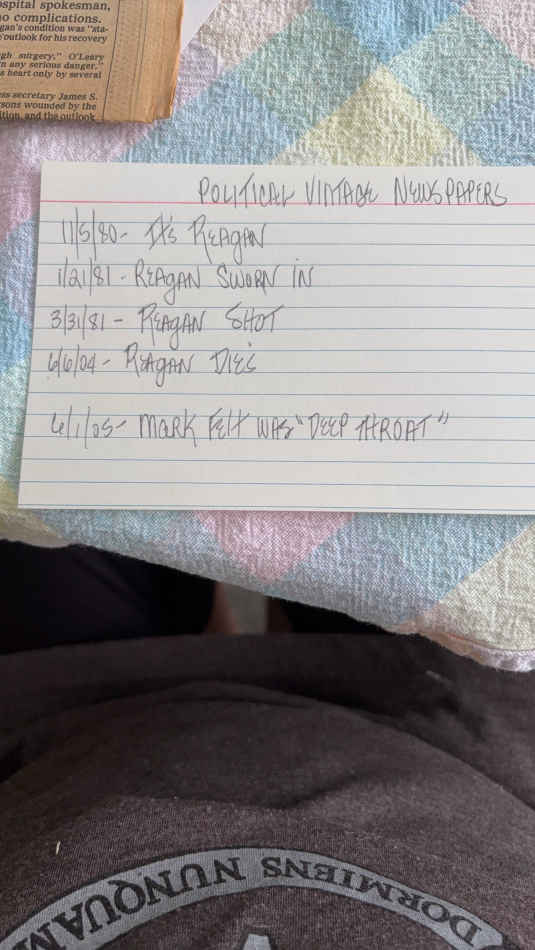 ospital spokesman,
no complications.
gan's condition was "sta-
outlook for his recovery
gh surgery," O'Leary
n any serious danger."
s heart only by several
ess secretary James S.
rsons wounded by the
ition, and the outlook
POLITICAL VINTAGE NEWSPAPERS
11/5/80- It's REAGAN
1/21/81 - REAGAN SWORN IN
3/31/81 - REAGAN SHOT
6/6/04 - REAGAN DIES
6/1/05- MARK FELT WAS "DEEP THROAT"
DORMIENS NUNQUAM